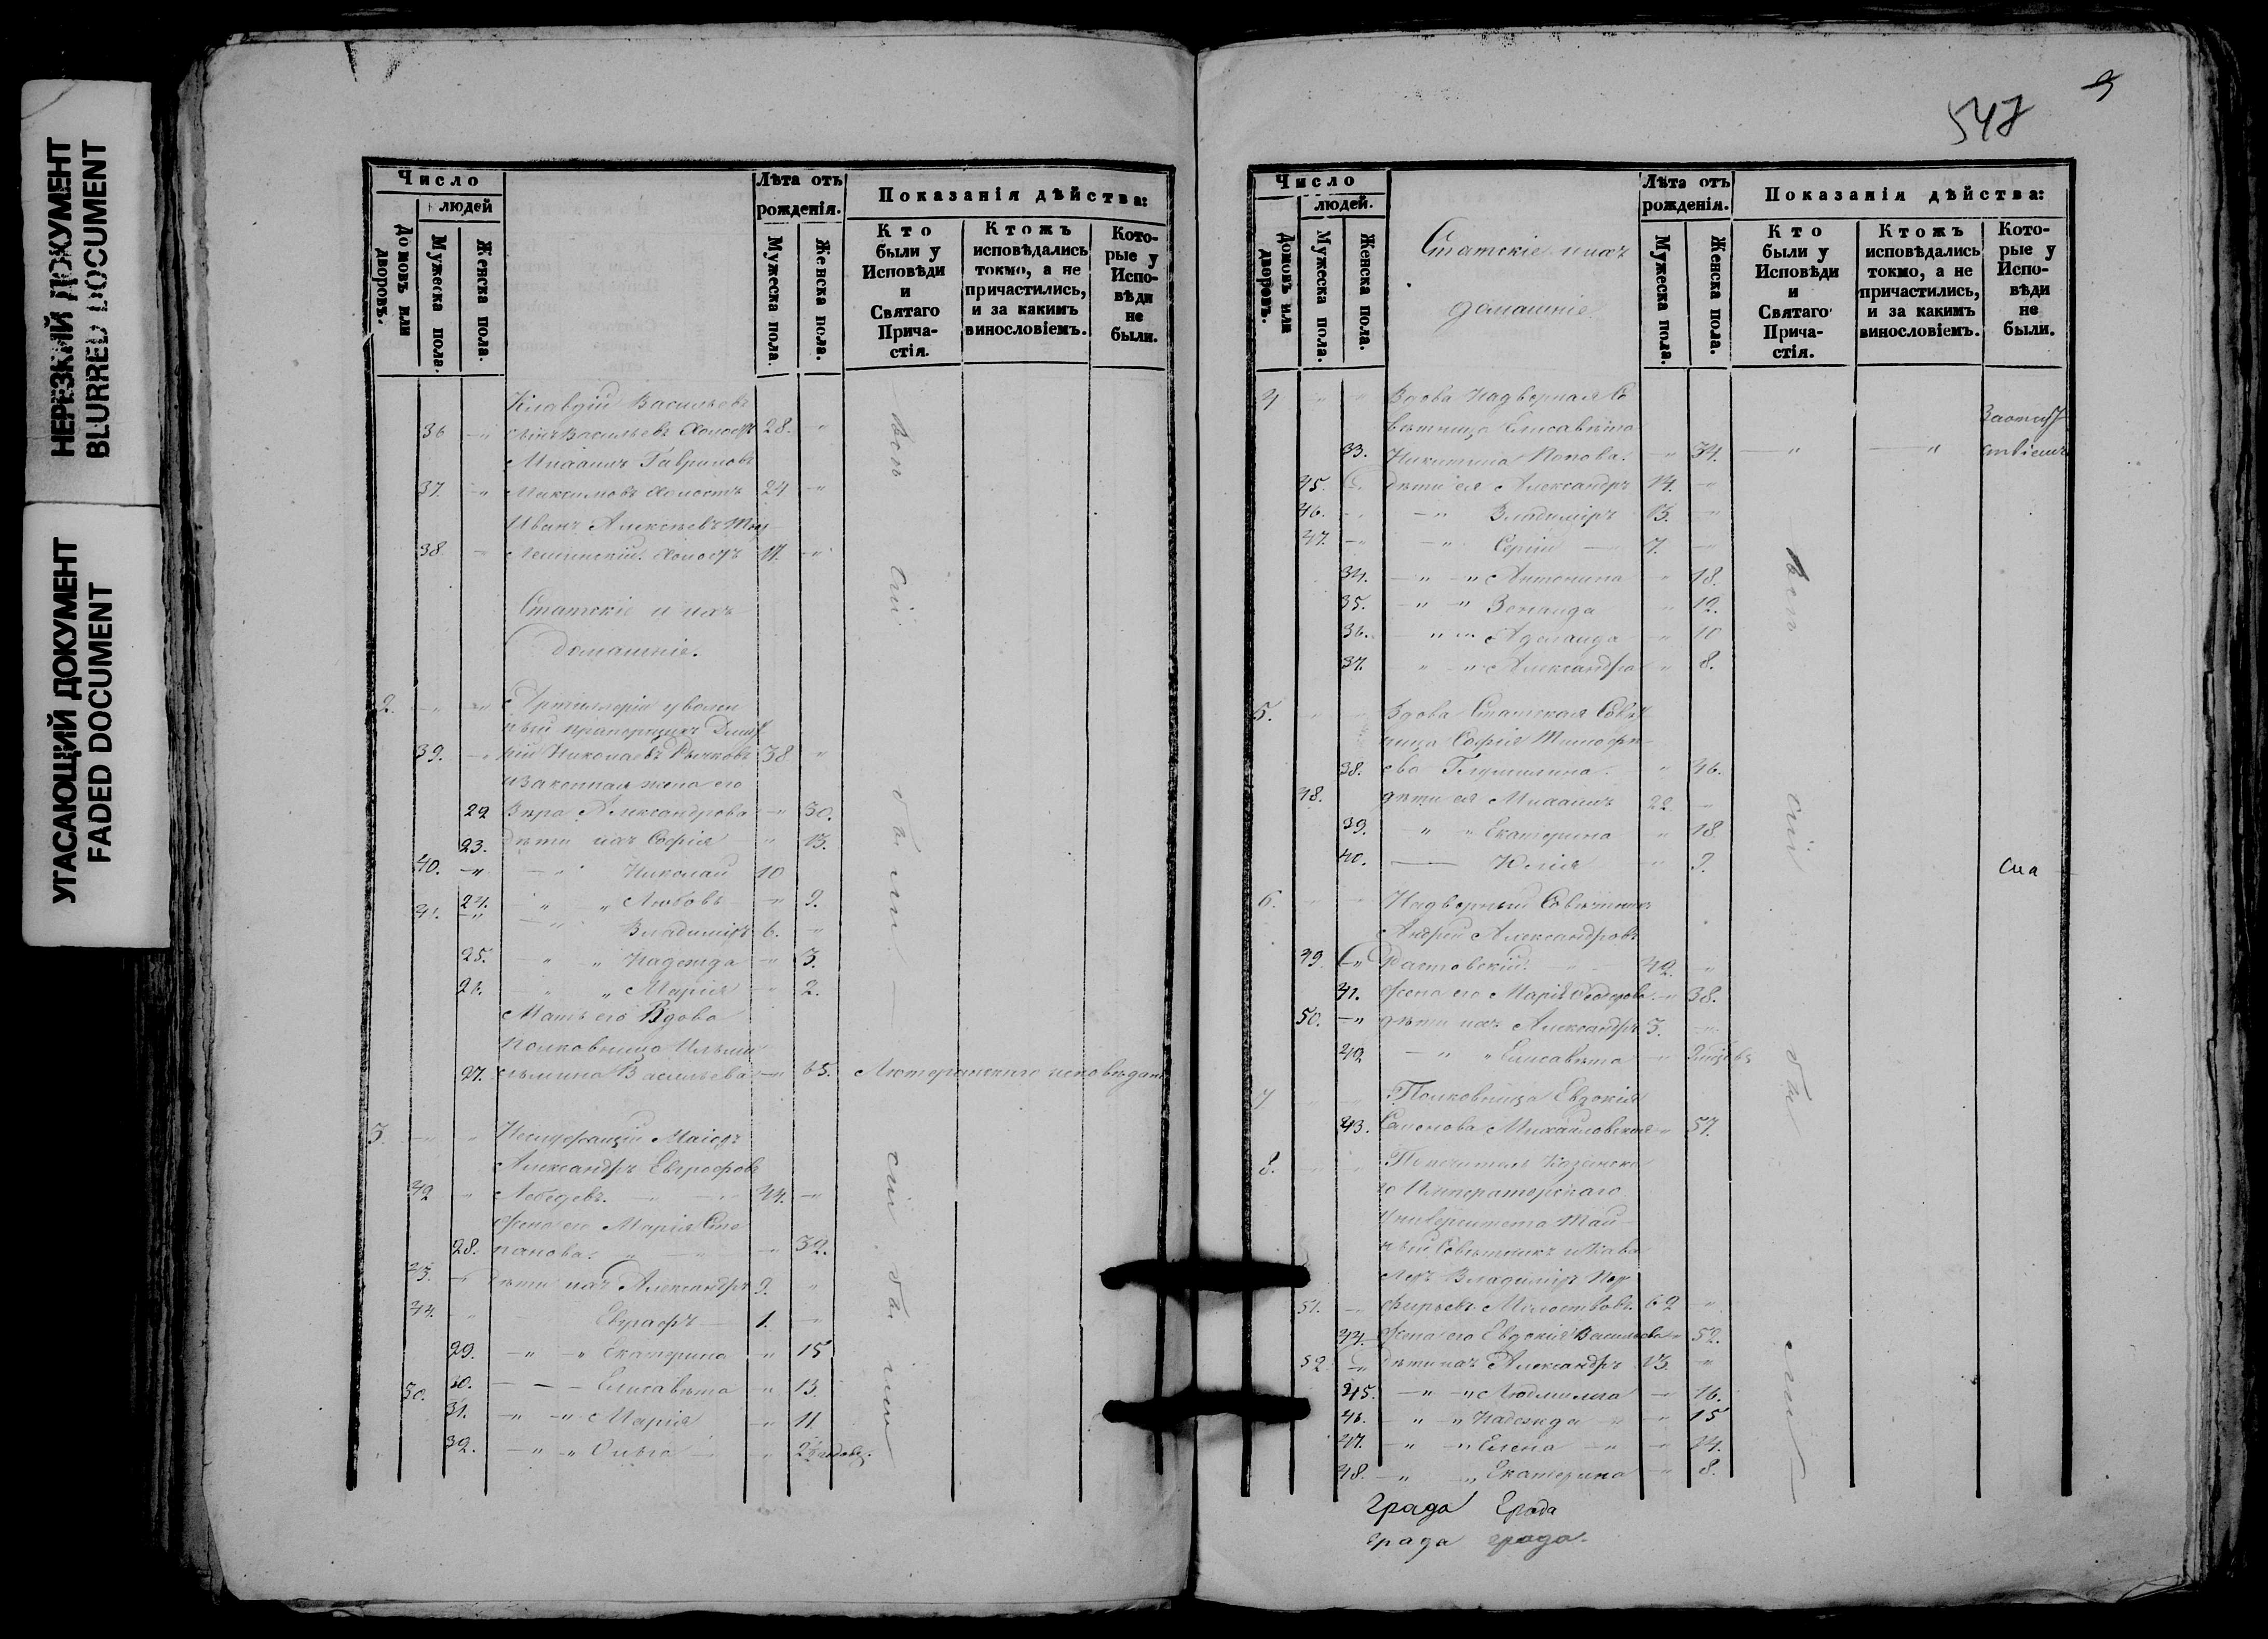 НЕРЕЗКИЙ ДОКУМЕНТ
BLURRED DOCUMENT
УГАСАЮЩИЙ ДОКУМЕНТ
FADED DOCUMENT
Число
людей
Домовъ или дворовъ.
Мужеска пола.
Женска пола.
Лѣта отъ рожденія.
Мужеска пола.
Женска пола.
Показанія дѣйства:
Кто были у Исповѣди и Святаго Причастія.
Ктожъ исповѣдались токмо, а не причастились, и за какимъ винословіемъ.
Которые у Исповѣди не были.
Клавдій Васильевъ
36 Васильевъ Холостъ 28.
Михаилъ Гавриловъ
37. Максимовъ Холостъ 24
Иванъ Алексѣевъ
38. Холостъ 17.
Статскіе и ихъ
Домашніе.
2. Артиллеріи уволен
ный прапорщикъ Дмит
39. рій Николаевъ Рычковъ 38
законная жена его
22 Вѣра Александрова 30.
23. дѣти ихъ Софія 13.
40. Николай 10
24. Любовь 9.
41. Владиміръ 6.
25. Надежда 3.
26. Марія 2.
Мать его Вдова
полковница
27. Васильева 65. Лютеранскаго исповѣдан
3. Маіоръ
Александръ Евграфовъ
42 Лебедевъ. 44.
Жена его Марія Сте
28. панова. 32.
43. дѣти ихъ Александръ 9.
44. Евграфъ 1.
29. Екатерина 15
50. 30. Елисавета 13.
31. Марія 11
32. Ольга
всѣ
сіи
были
сіи
бы
ли
547
9
Число
людей.
Домовъ или дворовъ.
Мужеска пола.
Женска пола.
Статскіе ихъ
домашніе
Лѣта отъ рожденія.
Мужеска пола.
Женска пола.
Показанія дѣйства:
Кто были у Исповѣди и Святаго Причастія.
Ктожъ исповѣдались токмо, а не причастились, и за какимъ винословіемъ.
Которые у Исповѣди не были.
4 Вдова Надворная Со
вѣтница Елисавета
33. Никитина Попова. 34. За отсут
ствіемъ
45. дѣти ея Александръ 14.
46. Владиміръ 13.
47. Сергій 7.
34. Антонина 18.
35. Зенаида 12.
36. Аделаида 10
37. Александра 8.
5. Вдова Статская Совѣт
ница Софія Тимофѣ
38. ева 46.
48. дѣти ея Михаилъ 22
39. Екатерина 18
40. Юлія 9.
6. Надворный Совѣтникъ
Андрей Александровъ
49. Растовскій. 42.
41. Жена его Марія Ѳеодорова 38.
50. дѣти ихъ Александръ 3.
42 Елисавета
7 Полковница Евдокія
43. Семенова Михайловская 57.
8. Попечитель Казанска
го Императорскаго
Университета Тай
ный Совѣтникъ и Кава
леръ Владиміръ Пор
51. фирьевъ Молоствовъ. 62
44. Жена его Евдокія Васильева 52.
52 дѣти ихъ Александръ 13.
45. Людмила 16.
46. Надежда 15
47. Елена 14.
48. Екатерина 8.
всѣ
сіи
бы
ли
сиа
града града
града града.